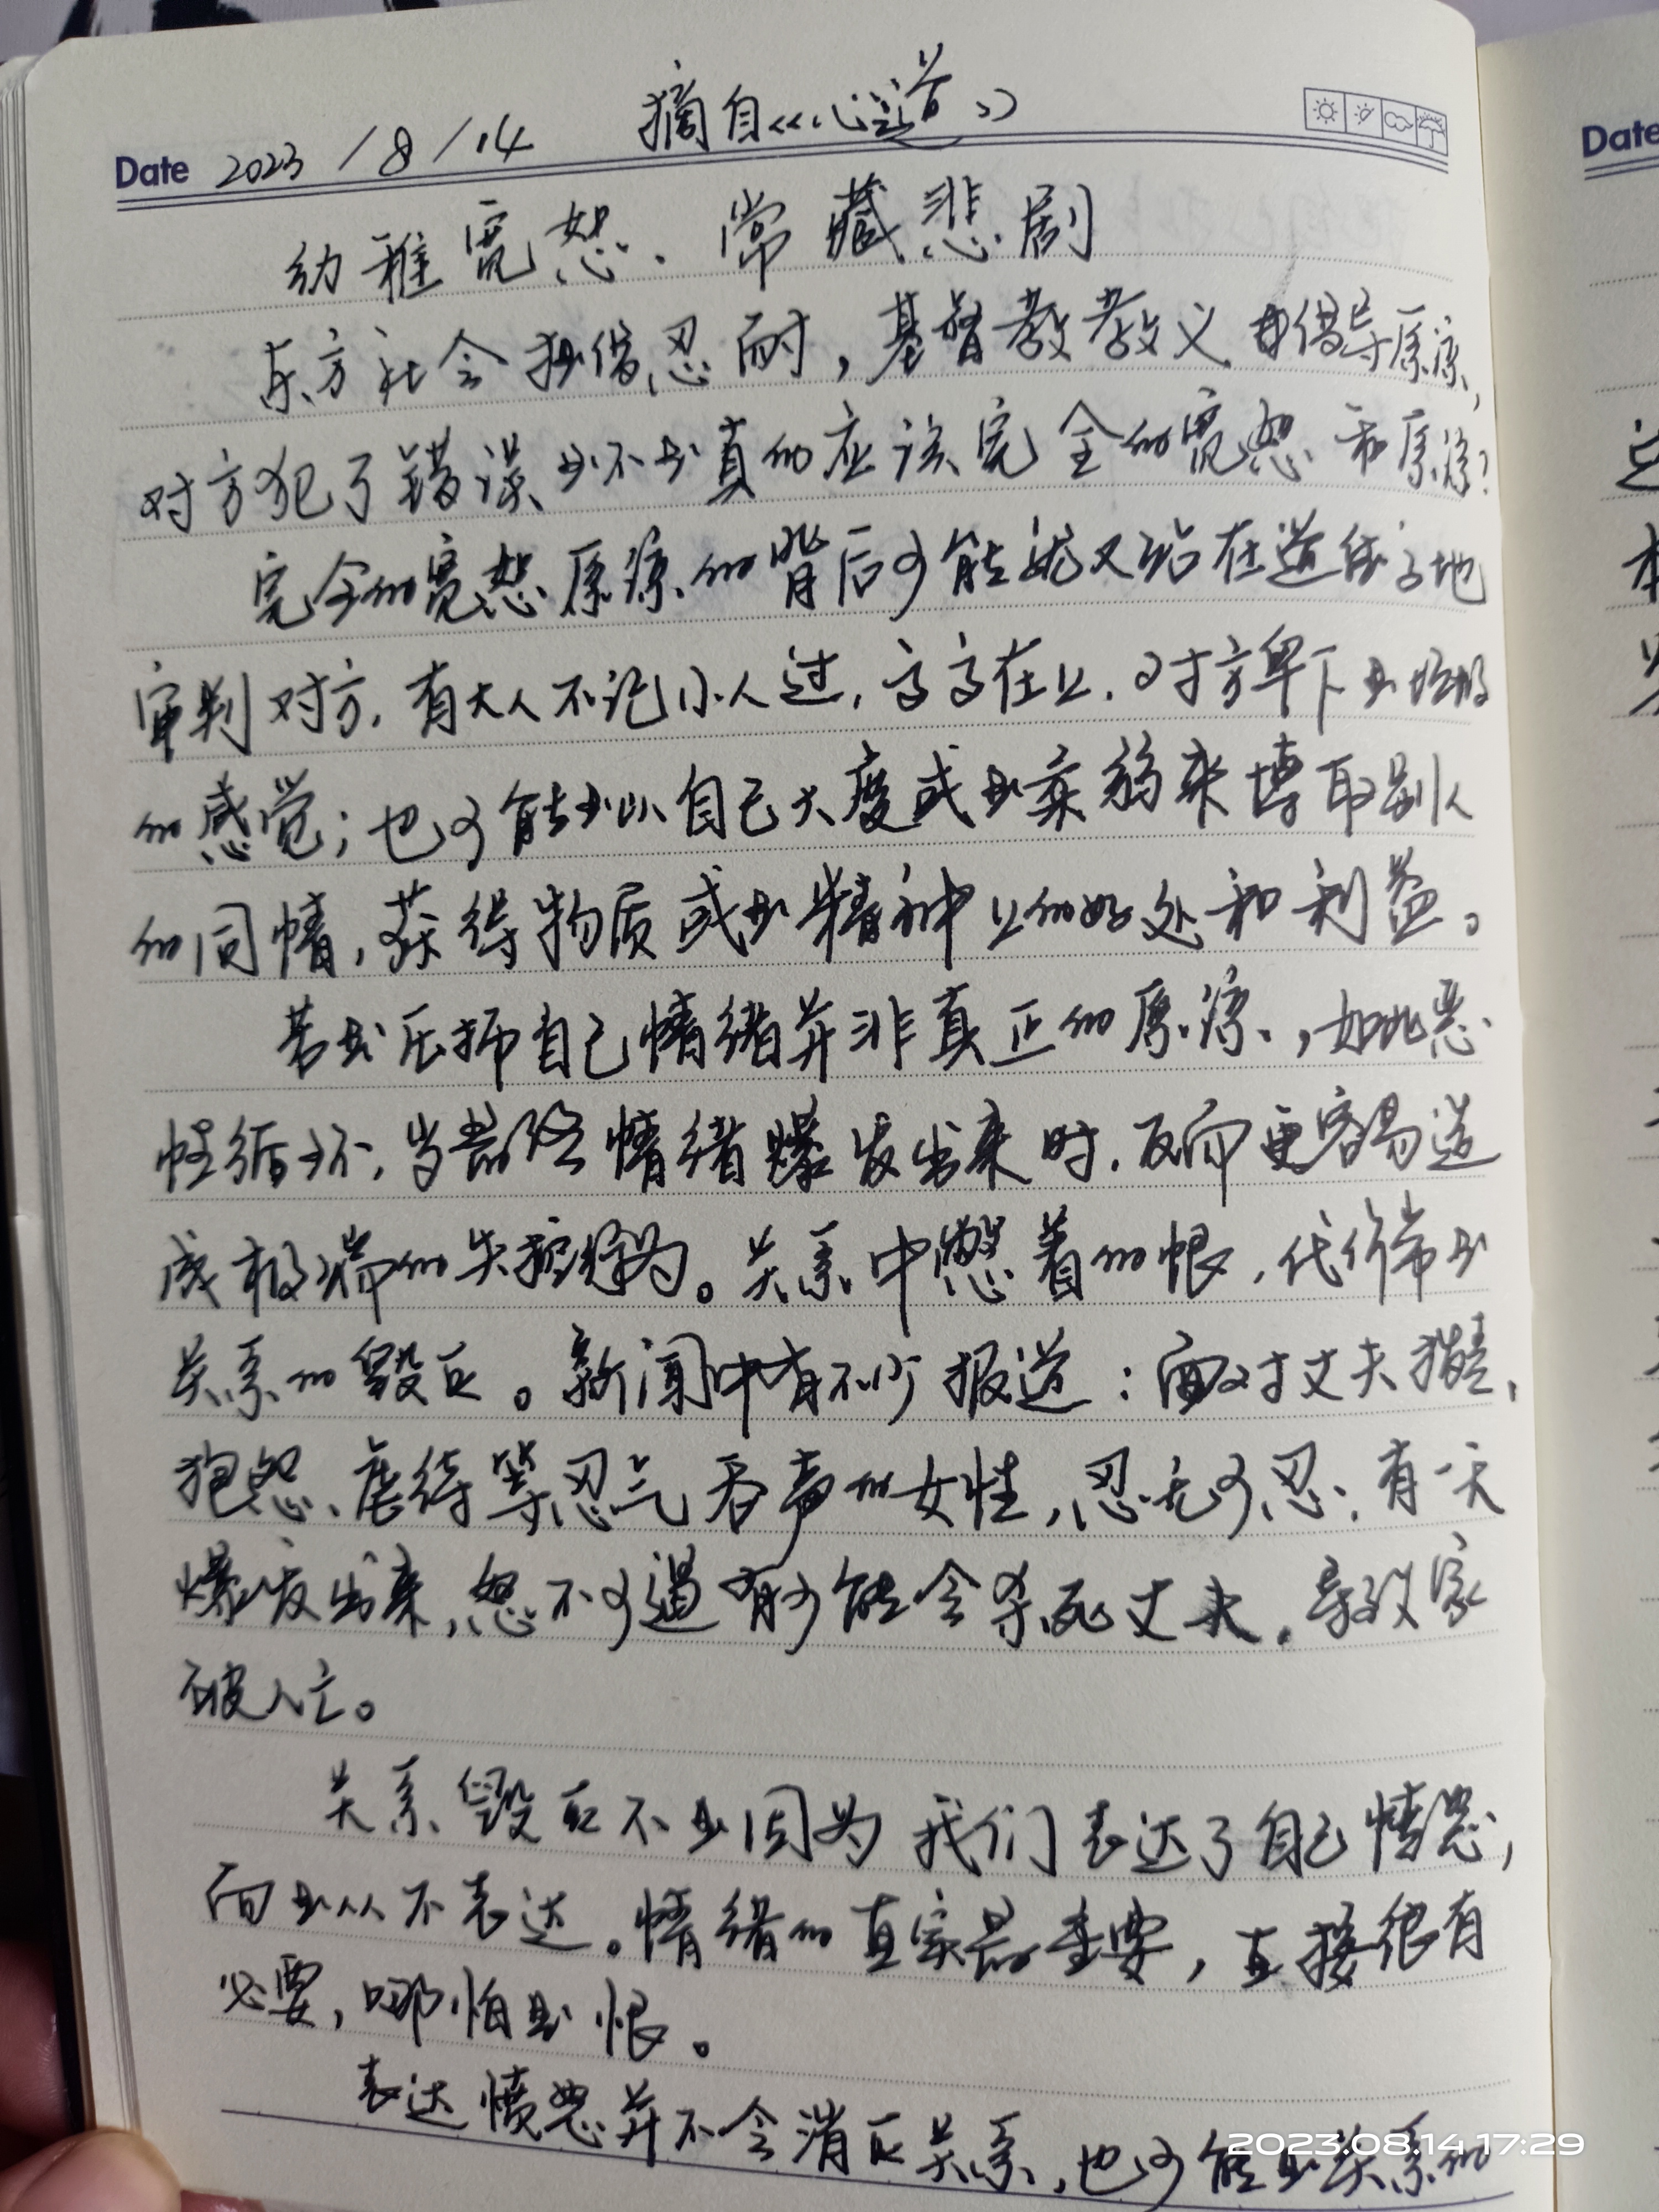 Date 2023/8/14 摘自《心道》
幼稚宽恕、常藏悲剧
东方社会提倡忍耐，基督教教义也倡导原谅，
对方犯了错误是不是真的应该完全的宽恕和原谅？
完全的宽恕原谅的背后可能就又站在道德高地
审判对方，有大人不记小人过，高高在上，对方卑下是垃圾
的感觉；也可能是以自己大度或是柔弱来博取别人
的同情，获得物质或是精神上的好处和利益。
若是压抑自己情绪并非真正的原谅，如此恶
性循环，当最终情绪爆发出来时，反而更容易造
成极端的失控行为。关系中憋着的恨，代价常是
关系的毁灭。新闻中有不少报道：面对丈夫猜忌，
抱怨、虐待等忍气吞声的女性，忍无可忍，有一天
爆发出来，怒不可遏有可能会杀死丈夫，导致家
破人亡。
关系毁灭不是因为我们表达了自己愤怒，
而是从不表达。情绪的真实最重要，直接很有
必要，哪怕是恨。
表达愤怒并不会消灭关系，也可能是关系的
2023.08.14 17:29
Date